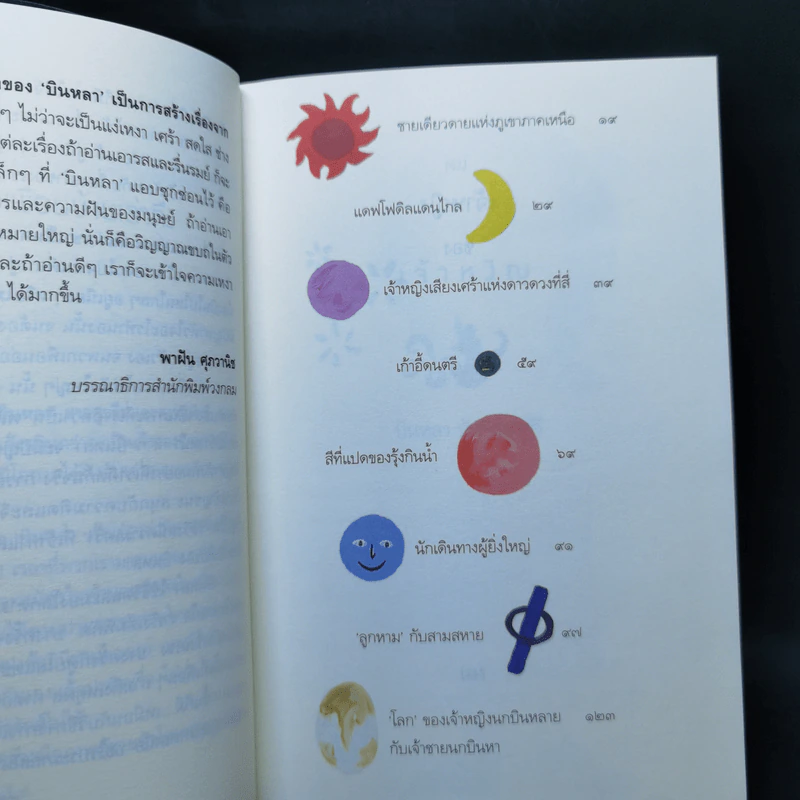 ของ 'บินหลา' เป็นการสร้างเรื่องจาก
ๆ ไม่ว่าจะเป็นแง่เหงา เศร้า สดใส ช่าง
ต่ละเรื่องถ้าอ่านเอารสและรื่นรมย์ ก็จะ
ล็กๆ ที่ 'บินหลา' แอบซุกซ่อนไว้ คือ
รและความฝันของมนุษย์ ถ้าอ่านเอา
หมายใหญ่ นั่นก็คือวิญญาณขบถในตัว
ละถ้าอ่านดีๆ เราก็จะเข้าใจความเหงา
ได้มากขึ้น
พาฝัน ศุภวานิช
บรรณาธิการสำนักพิมพ์วงกลม
ชายเดียวดายแห่งภูเขาภาคเหนือ ๑๙
แดฟโฟดิลแดนไกล ๒๙
เจ้าหญิงเสียงเศร้าแห่งดาวดวงที่สี่ ๓๙
เก้าอี้ดนตรี ๕๙
สีที่แปดของรุ้งกินน้ำ ๖๙
นักเดินทางผู้ยิ่งใหญ่ ๙๑
'ลูกหาม' กับสามสหาย ๙๗
'โลก' ของเจ้าหญิงนกบินหลาย ๑๒๓
กับเจ้าชายนกบินหา